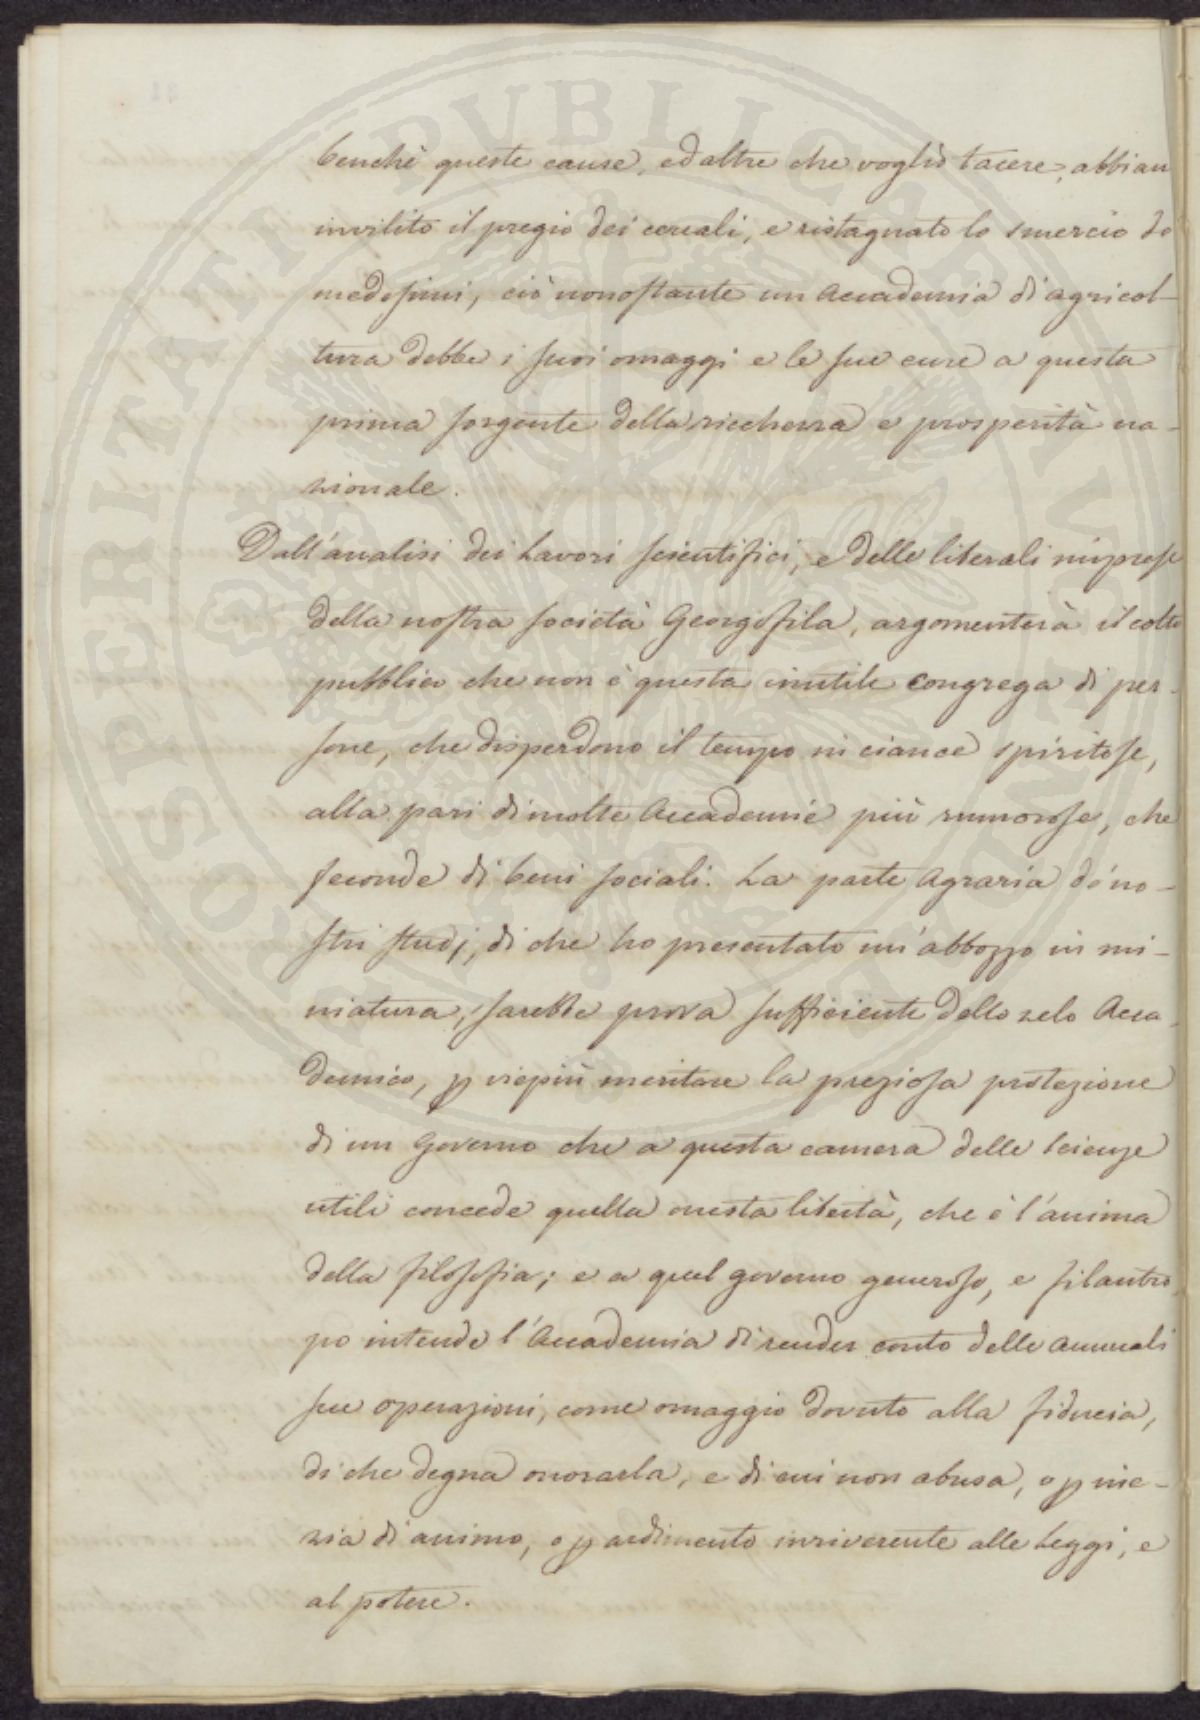 benchè queste cause, ed altre che voglio tacere, abbian
invilito il pregio dei cereali, e ristagnato lo smercio de
medesimi, ciò nonostante un Accademia di agricol-
tura debbe i suoi omaggi e le sue cure a questa
prima sorgente della ricchezza e prosperità na-
zionale.
Dall'analisi dei Lavori scientifici, e delle liberali imprese
della nostra società Georgofila, argomenterà il colto
pubblico che non è questa inutile congrega di per-
sone, che disperdono il tempo in ciance spiritose,
alla pari di molte Accademie più rumorose, che
feconde di beni sociali. La parte Agraria de' no-
stri studj, di che ho presentato un'abbozzo in mi-
niatura, sarebbe prova sufficiente dello zelo Acca-
demico, p viepiù meritare la preziosa protezione
di un Governo che a questa camera delle scienze
utili concede quella onesta libertà, che è l'anima
della filosofia; e a quel governo generoso, e filantro
po intende l'Accademia di render conto delle annuali
sue operazioni, come omaggio dovuto alla fiducia,
di che degna onorarla, e di cui non abusa, o p ine-
zia di animo, o p ardimento inriverente alle Leggi, e
al potere.
PROSPERITATI PUBLICAE AUGENDAE